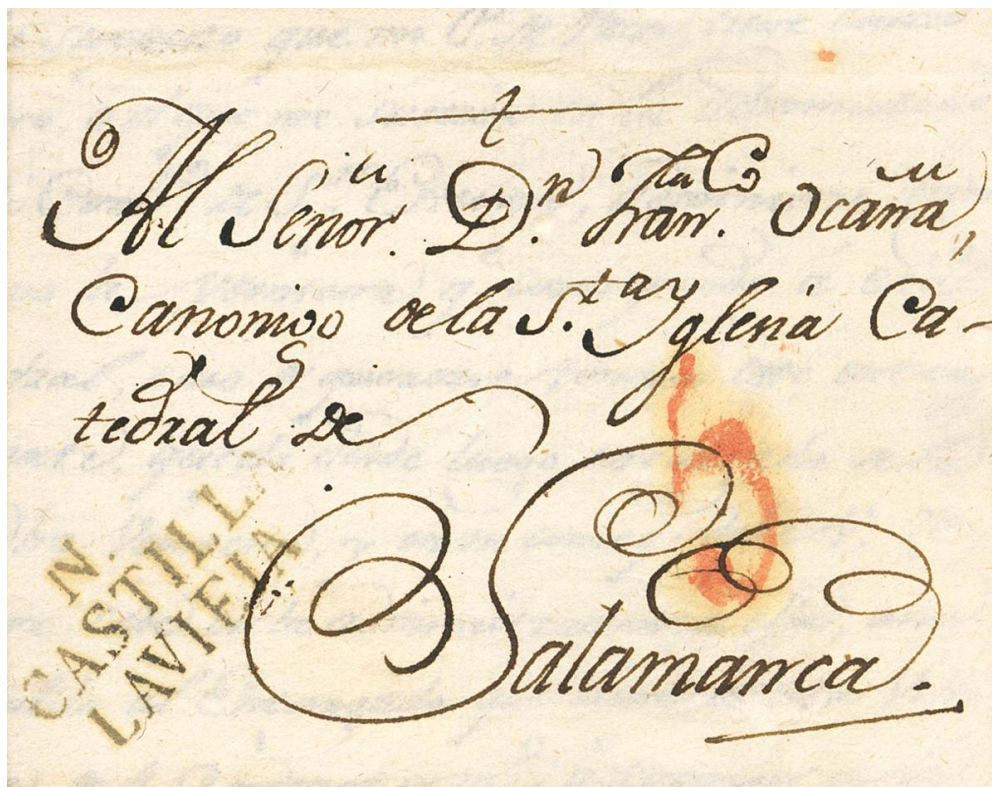 Al Señor. Dn. Franco. Ocaña,
Canonigo de la S.ta Yglesia Ca-
tedral de
Salamanca.
N.
CASTILLA
LAVIEIA